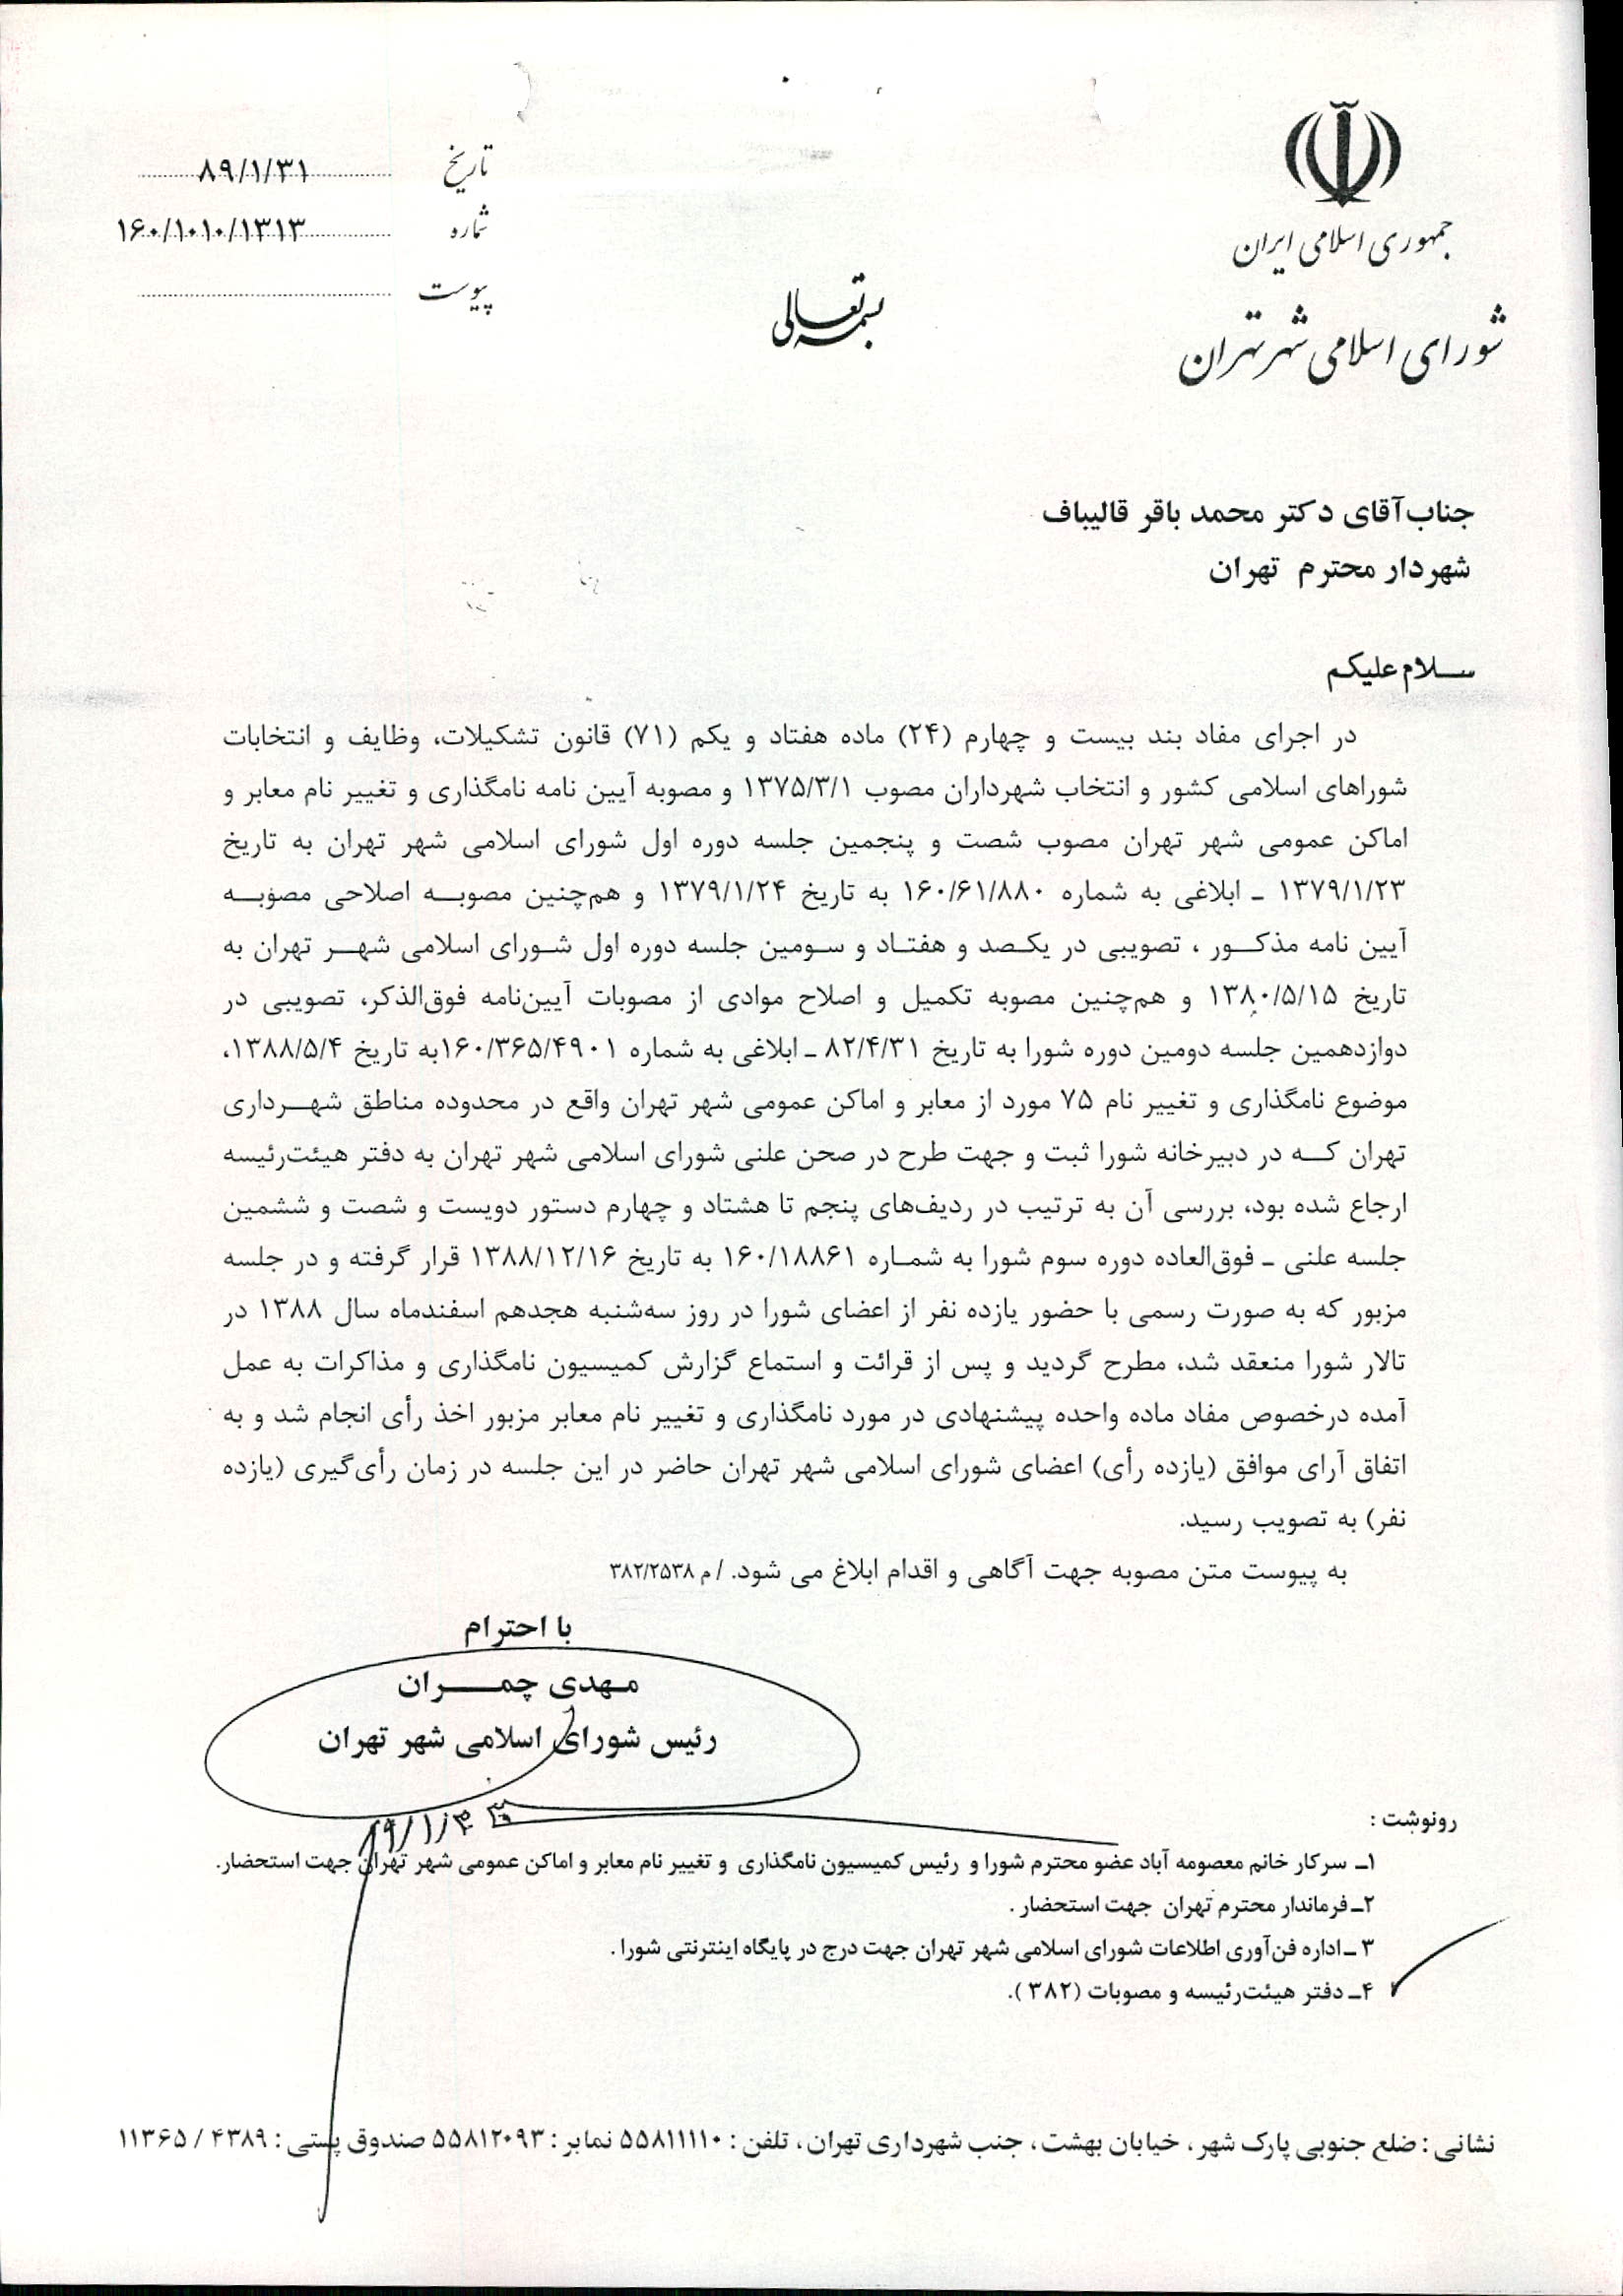 جمهوری اسلامی ایران
شورای اسلامی شهر تهران
بسمه تعالی
تاریخ ۸۹/۱/۳۱
شماره ۱۶۰/۱۰۱۰/۱۳۱۳
پیوست
جناب آقای دکتر محمد باقر قالیباف
شهردار محترم تهران
سلام علیکم
در اجرای مفاد بند بیست و چهارم (۲۴) ماده هفتاد و یکم (۷۱) قانون تشکیلات، وظایف و انتخابات
شوراهای اسلامی کشور و انتخاب شهرداران مصوب ۱۳۷۵/۳/۱ و مصوبه آیین نامه نامگذاری و تغییر نام معابر و
اماکن عمومی شهر تهران مصوب شصت و پنجمین جلسه دوره اول شورای اسلامی شهر تهران به تاریخ
۱۳۷۹/۱/۲۳ ـ ابلاغی به شماره ۱۶۰/۶۱/۸۸۰ به تاریخ ۱۳۷۹/۱/۲۴ و هم‌چنین مصوبه اصلاحی مصوبه
آیین نامه مذکور ، تصویبی در یکصد و هفتاد و سومین جلسه دوره اول شورای اسلامی شهر تهران به
تاریخ ۱۳۸۰/۵/۱۵ و هم‌چنین مصوبه تکمیل و اصلاح موادی از مصوبات آیین‌نامه فوق‌الذکر، تصویبی در
دوازدهمین جلسه دومین دوره شورا به تاریخ ۸۲/۴/۳۱ ـ ابلاغی به شماره ۱۶۰/۳۶۵/۴۹۰۱به تاریخ ۱۳۸۸/۵/۴،
موضوع نامگذاری و تغییر نام ۷۵ مورد از معابر و اماکن عمومی شهر تهران واقع در محدوده مناطق شهرداری
تهران که در دبیرخانه شورا ثبت و جهت طرح در صحن علنی شورای اسلامی شهر تهران به دفتر هیئت‌رئیسه
ارجاع شده بود، بررسی آن به ترتیب در ردیف‌های پنجم تا هشتاد و چهارم دستور دویست و شصت و ششمین
جلسه علنی ـ فوق‌العاده دوره سوم شورا به شماره ۱۶۰/۱۸۸۶۱ به تاریخ ۱۳۸۸/۱۲/۱۶ قرار گرفته و در جلسه
مزبور که به صورت رسمی با حضور یازده نفر از اعضای شورا در روز سه‌شنبه هجدهم اسفندماه سال ۱۳۸۸ در
تالار شورا منعقد شد، مطرح گردید و پس از قرائت و استماع گزارش کمیسیون نامگذاری و مذاکرات به عمل
آمده درخصوص مفاد ماده واحده پیشنهادی در مورد نامگذاری و تغییر نام معابر مزبور اخذ رأی انجام شد و به
اتفاق آرای موافق (یازده رأی) اعضای شورای اسلامی شهر تهران حاضر در این جلسه در زمان رأی‌گیری (یازده
نفر) به تصویب رسید.
به پیوست متن مصوبه جهت آگاهی و اقدام ابلاغ می شود. / م ۳۸۲/۲۵۳۸
با احترام
مهدی چمران
رئیس شورای اسلامی شهر تهران
رونوشت :
۱ـ سرکار خانم معصومه آباد عضو محترم شورا و رئیس کمیسیون نامگذاری و تغییر نام معابر و اماکن عمومی شهر تهران جهت استحضار.
۲ـ فرماندار محترم تهران جهت استحضار .
۳ ـ اداره فن‌آوری اطلاعات شورای اسلامی شهر تهران جهت درج در پایگاه اینترنتی شورا .
۴ـ دفتر هیئت‌رئیسه و مصوبات (۳۸۲ ).
نشانی : ضلع جنوبی پارک شهر ، خیابان بهشت ، جنب شهرداری تهران ، تلفن : ۵۵۸۱۱۱۱۰ نمابر : ۵۵۸۱۲۰۹۳ صندوق پستی : ۴۳۸۹ / ۱۱۳۶۵